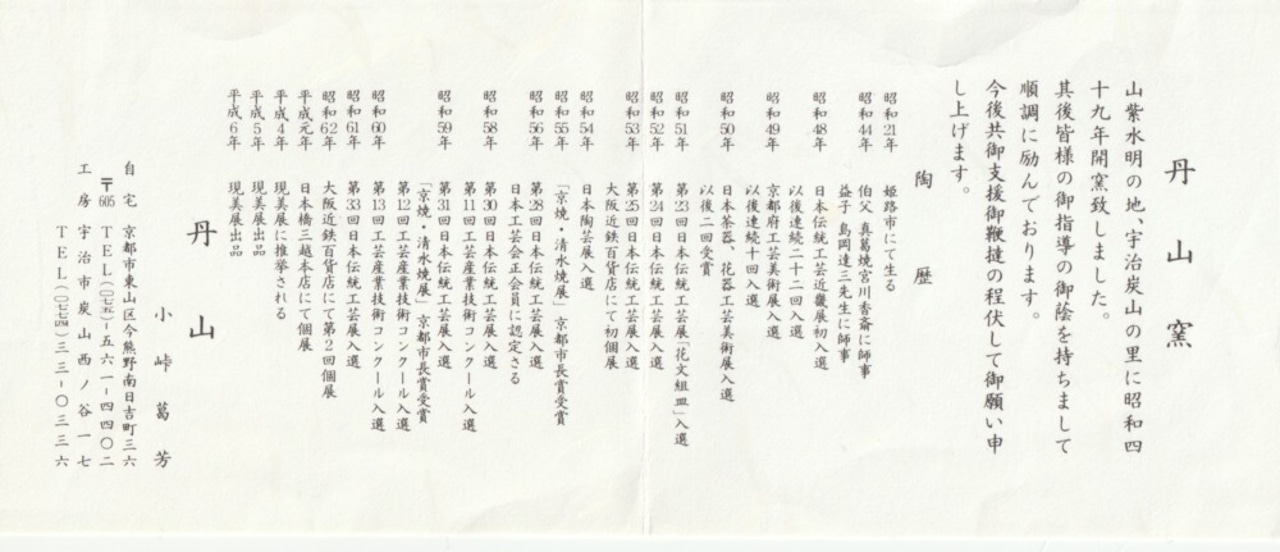 丹山窯
山紫水明の地、宇治炭山の里に昭和四
十九年開窯致しました。
其後皆様の御指導の御蔭を持ちまして
順調に励んでおります。
今後共御支援御鞭撻の程伏して御願い申
し上げます。
陶歴
昭和21年 姫路市にて生る
昭和44年 伯父 真葛焼宮川香斎に師事
益子 島岡達三先生に師事
昭和48年 日本伝統工芸近畿展初入選
以後連続二十二回入選
昭和49年 京都府工芸美術展入選
以後連続十回入選
昭和50年 日本茶器、花器工芸美術展入選
以後二回受賞
昭和51年 第23回日本伝統工芸展「花文組皿」入選
昭和52年 第24回日本伝統工芸展入選
昭和53年 第25回日本伝統工芸展入選
大阪近鉄百貨店にて初個展
昭和54年 日本陶芸展入選
昭和55年 「京焼・清水焼展」京都市長賞受賞
昭和56年 第28回日本伝統工芸展入選
日本工芸会正会員に認定さる
昭和58年 第30回日本伝統工芸展入選
第11回工芸産業技術コンクール入選
昭和59年 第31回日本伝統工芸展入選
「京焼・清水焼展」京都市長賞受賞
第12回工芸産業技術コンクール入選
昭和60年 第13回工芸産業技術コンクール入選
昭和61年 第33回日本伝統工芸展入選
昭和62年 大阪近鉄百貨店にて第2回個展
平成元年 日本橋三越本店にて個展
平成4年 現美展に推挙される
平成5年 現美展出品
平成6年 現美展出品
丹山
小峠葛芳
自宅 京都市東山区今熊野南日吉町三六
〒605 TEL(〇七五)-五六一-四四〇二
工房 宇治市炭山西ノ谷一七
TEL(〇七七四)三二-〇三三六